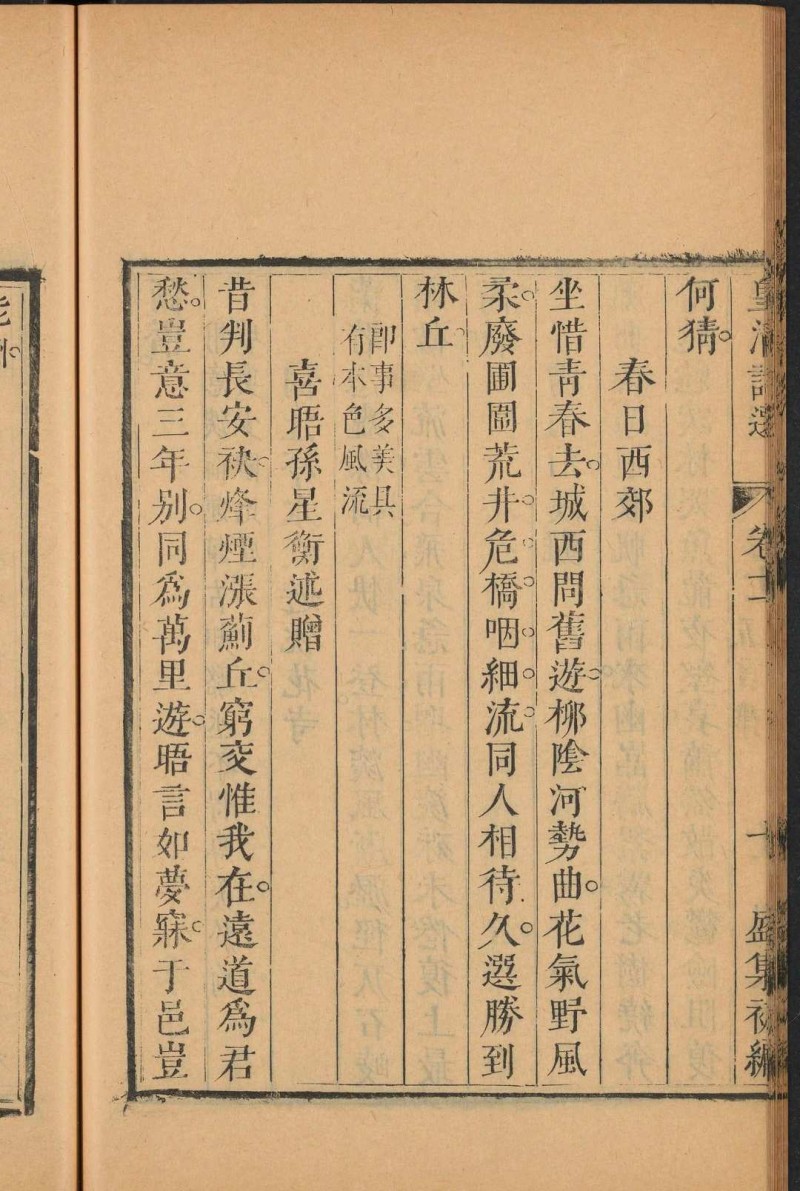 皇清詩選 卷十二 十 盛集初編
何猜。
春日西郊
坐惜青春去。城西問舊遊。柳陰河勢曲。花氣野風
柔。廢圃圍荒井。危橋咽細流。同人相待久。選勝到
林丘。
即事多美具
有本色風流
喜晤孫星衡述贈
昔判長安袂。烽煙漲薊丘。窮交惟我在。遠道為君
愁。豈意三年別。同為萬里遊。晤言如夢寐。于邑豈